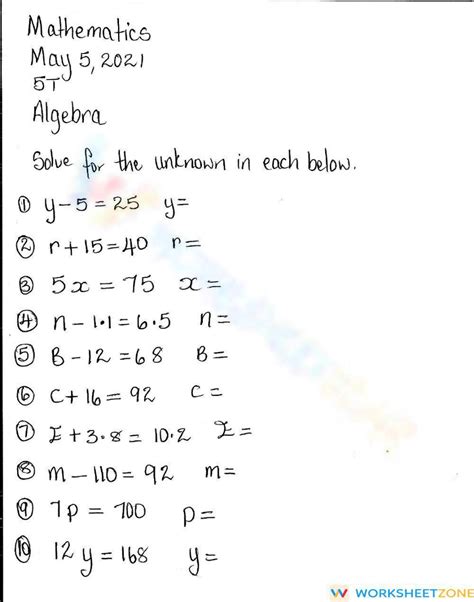 Mathematics
May 5, 2021
5T
Algebra
Solve for the unknown in each below.
① y - 5 = 25 y =
② r + 15 = 40 r =
③ 5x = 75 x =
④ n - 1.1 = 6.5 n =
⑤ B - 12 = 68 B =
⑥ C + 16 = 92 C =
⑦ I + 3.8 = 10.2 I =
⑧ m - 110 = 92 m =
⑨ 7p = 700 p =
⑩ 12y = 168 y =
WORKSHEETZONE